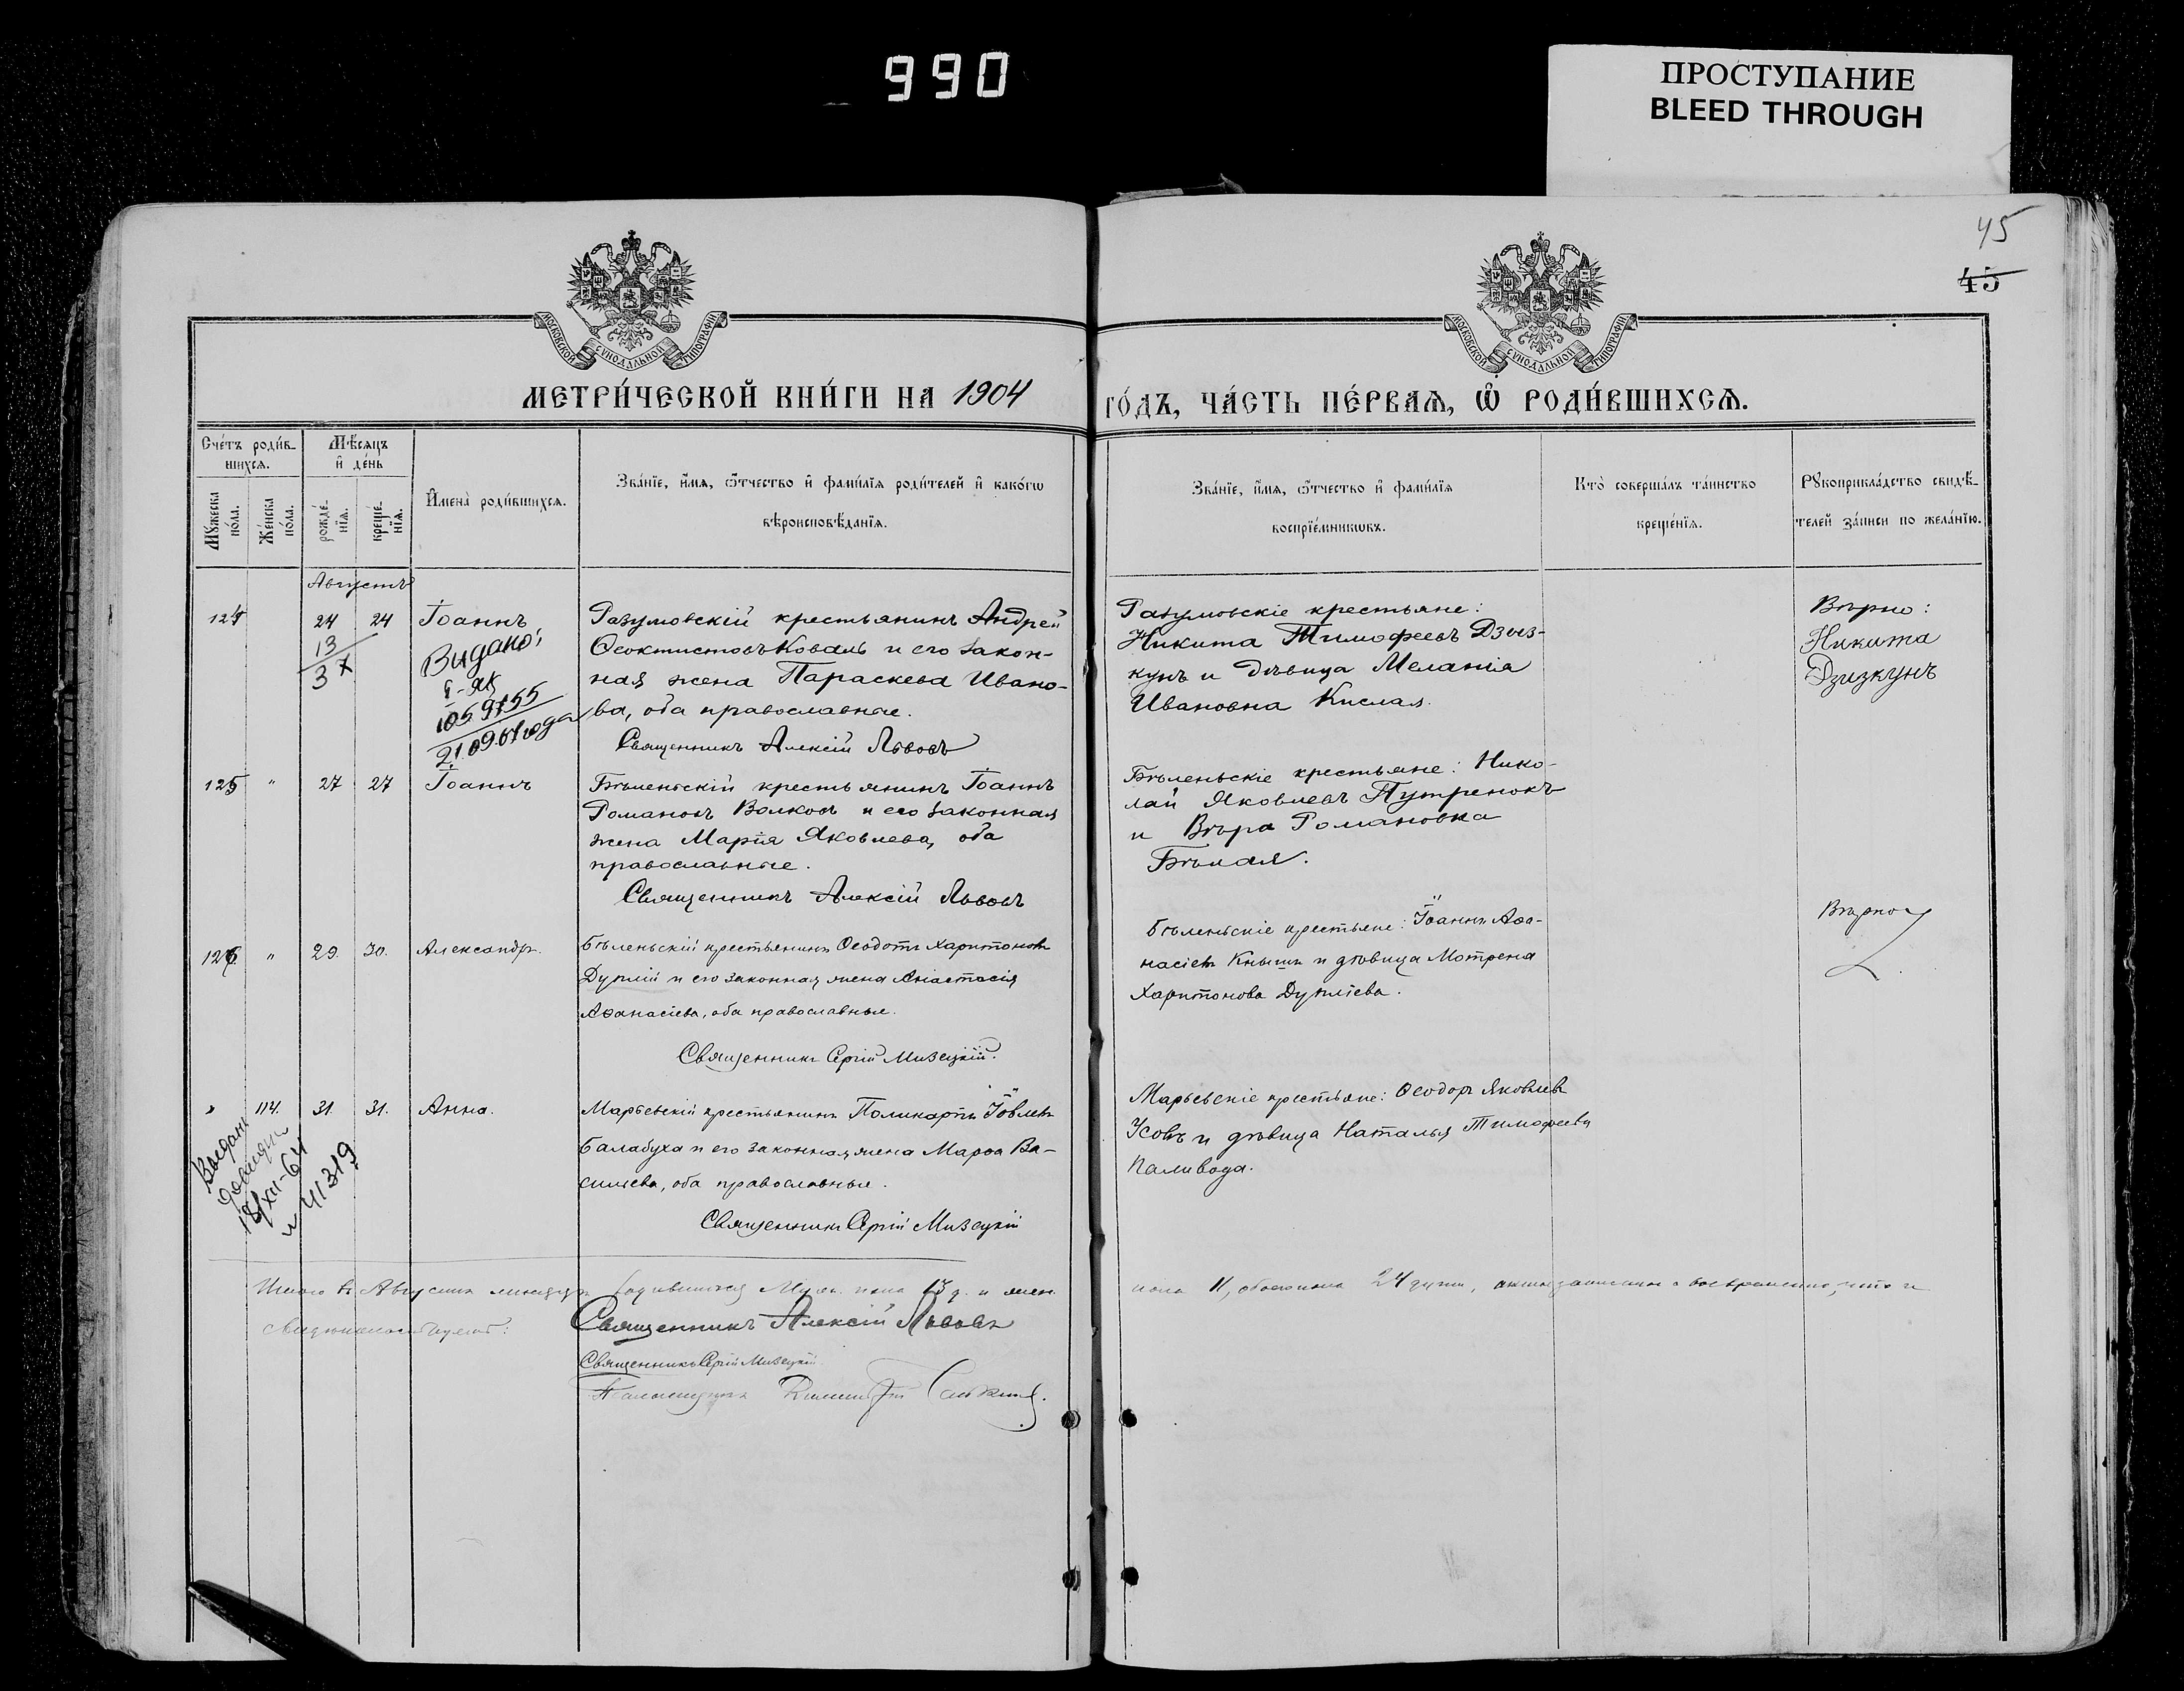 990
ПРОСТУПАНИЕ
BLEED THROUGH
45
45
МОСКОВСКОЙ СѴНОДАЛЬНОЙ ТИПОГРАФІИ
МОСКОВСКОЙ СѴНОДАЛЬНОЙ ТИПОГРАФІИ
МЕТРИ́ЧЕСКОЙ КНИ́ГИ НА 1904
ГО́ДЪ, ЧА́СТЬ ПЕ́РВАѦ, Ѽ РОДИ́ВШИХСѦ.
Сче́тъ роди́в-
шихсѧ.
Мѣ́сѧцъ
и҆ де́нь
Мꙋ́жеска по́ла.
Же́нска по́ла.
рожде́-
нїѧ.
креще́-
нїѧ.
И҆мена̀ роди́вшихсѧ.
Зва́нїе, и҆́мѧ, ѻ҆́тчество и҆ фами́лїѧ роди́телей и҆ како́гѡ
вѣроисповѣ́данїѧ.
Зва́нїе, и҆́мѧ, ѻ҆́тчество и҆ фами́лїѧ
воспрїе́мникѡвъ.
Кто̀ соверша́лъ та́инство
креще́нїѧ.
Рꙋкоприкла́дство свидѣ́-
телей за́писи по жела́нїю.
Августъ
124 24 24 Іоаннъ
13
3 х
Видано:
І-ЯК
1059755
21.09.01 года
Разумовскій крестьянинъ Андрей
Ѳеоктистовъ Коваль и его закон-
ная жена Параскева Ивано-
ва, оба православные.
Священникъ Алексій Львовъ
Разумовскіе крестьяне:
Никита Тимофеевъ Дзыз-
кунъ и дѣвица Меланія
Ивановна Кислая.
Вѣрно:
Никита
Дзизкунъ
125 " 27 27 Іоаннъ
Бѣленьскій крестьянинъ Іоаннъ
Романовъ Волковъ и его законная
жена Марія Яковлева, оба
православные.
Священникъ Алексій Львовъ
Бѣленьскіе крестьяне: Нико-
лай Яковлевъ Путренокъ
и Вѣра Романовна
Бѣлая.
126 " 29. 30. Александръ.
Бѣленьскій крестьянинъ Ѳеодотъ Харитоновъ
Дуплій и его законная жена Анастасія
Аѳанасіева, оба православные.
Священникъ Сергій Мизецкій.
Бѣленьскіе крестьяне: Іоаннъ Аѳа-
насіевъ Кнышъ и дѣвица Мотрена
Харитонова Дупліева.
Вѣрно
" 114. 31. 31. Анна.
Выдана
18/XII-64
№ 41319
Марьевскій крестьянинъ Поликарпъ Іовлевъ
Балабуха и его законная жена Марѳа Ва-
силіева, оба православные.
Священникъ Сергій Мизецкій
Марьевскіе крестьяне: Ѳеодоръ Яковлевъ
Усовъ и дѣвица Наталья Тимофеева
Паливода.
Итого въ Августѣ мѣсяцѣ родившихся Муж. пола 13 д. и жен.
пола 11, обоего пола 24 души,
Священникъ Алексій Львовъ
Священникъ Сергій Мизецкій